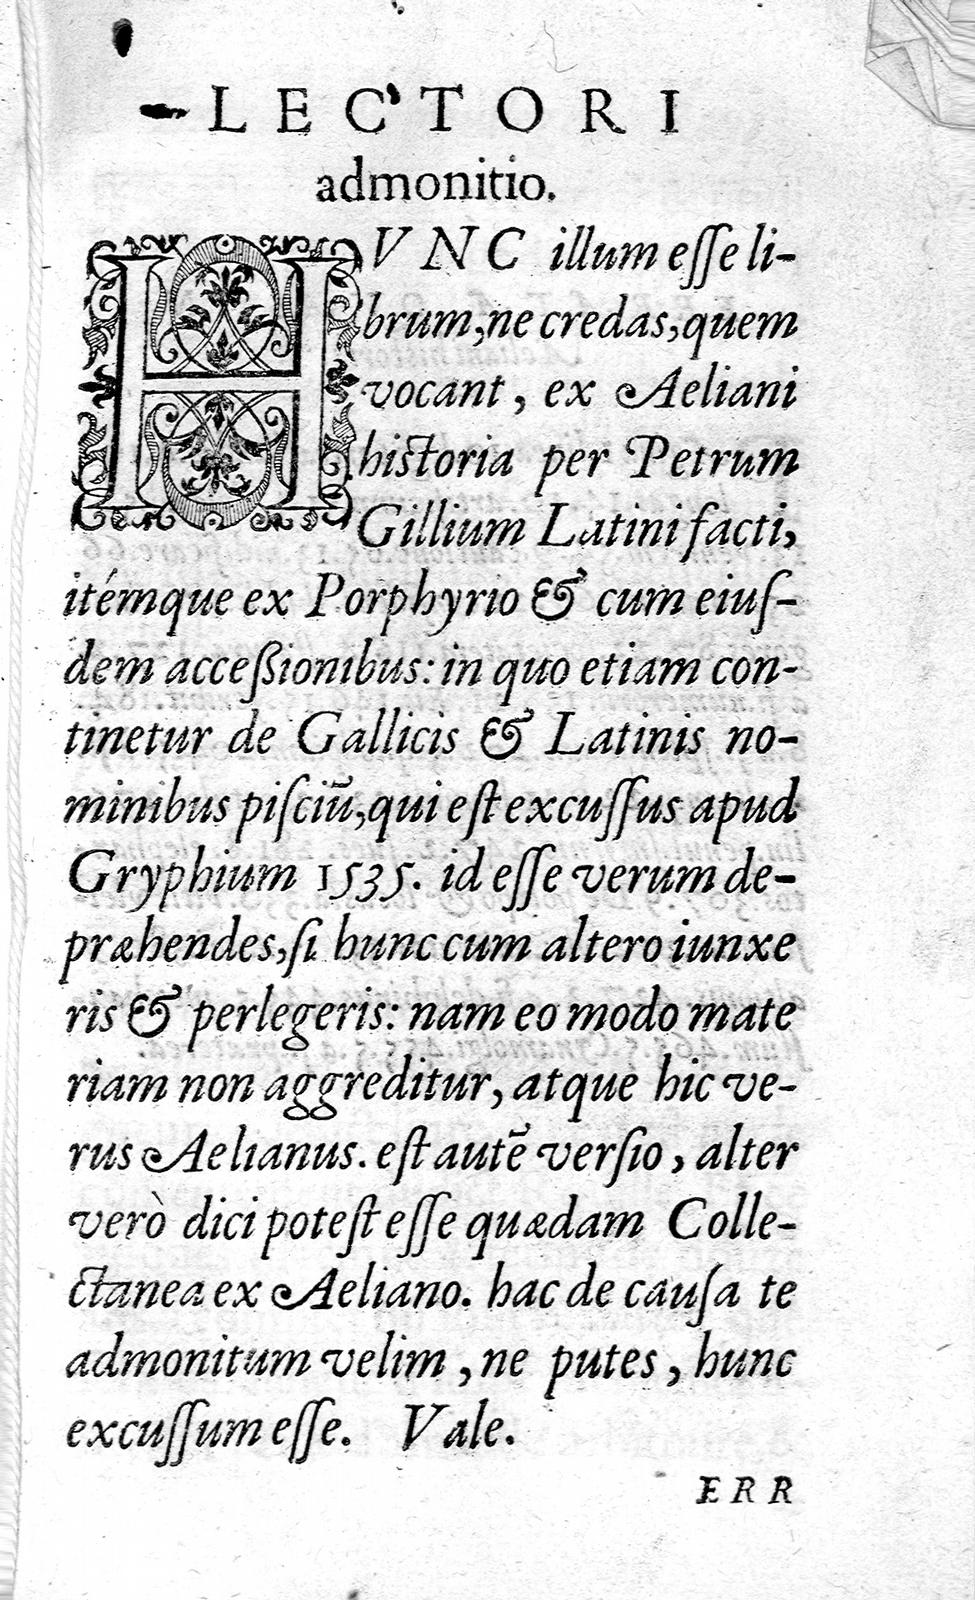 LECTORI
admonitio.
HVNC illum eſſe li-
brum, ne credas, quem
vocant, ex Aeliani
hiſtoria per Petrum
Gillium Latini facti,
itémque ex Porphyrio & cum eiuſ-
dem acceßionibus: in quo etiam con-
tinetur de Gallicis & Latinis no-
minibus piſciū, qui eſt excuſſus apud
Gryphium 1535. id eſſe verum de-
præhendes, ſi hunc cum altero iunxe
ris & perlegeris: nam eo modo mate
riam non aggreditur, atque hic ve-
rus Aelianus. eſt autē verſio, alter
verò dici poteſt eſſe quædam Colle-
ctanea ex Aeliano. hac de cauſa te
admonitum velim, ne putes, hunc
excuſſum eſſe. Vale.
ERR